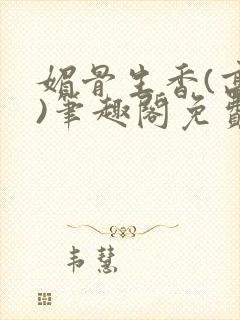 媚骨生香(高
)笔趣阁免费
韦慧